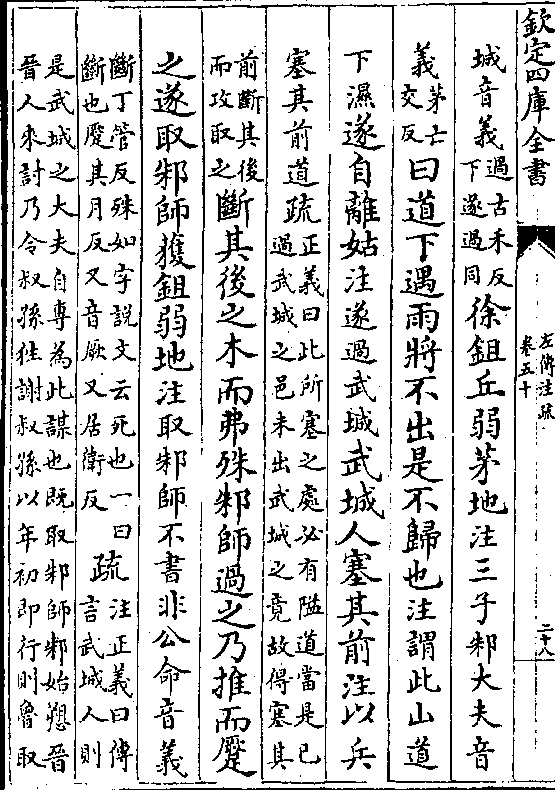 欽定四庫全書
左傳注疏
卷五十
二十八
城音義過古禾反
下遂過同徐鉏丘弱茅地注三子邾大夫音
義茅亡
交反曰道下遇雨將不出是不歸也注謂此山道
下濕遂自離姑注遂過武城武城人塞其前注以兵
塞其前道疏正義曰此所塞之處必有隘道當是已
過武城之邑未出武城之竟故得塞其
前斷其後
而攻取之斷其後之木而弗殊邾師過之乃推而蹷
之遂取邾師獲鉏弱地注取邾師不書非公命音義
斷丁管反殊如字說文云死也一曰
斷也蹷其月反又音厥又居衛反疏注正義曰傳
言武城人則
是武城之大夫自專為此謀也既取邾師邾始愬晉
晉人來討乃令叔孫往謝叔孫以年初即行則魯取